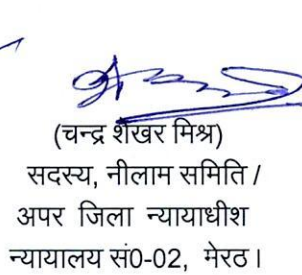 (चन्द्र शेखर मिश्र)
सदस्य, नीलाम समिति /
अपर जिला न्यायाधीश
न्यायालय सं0-02, मेरठ।